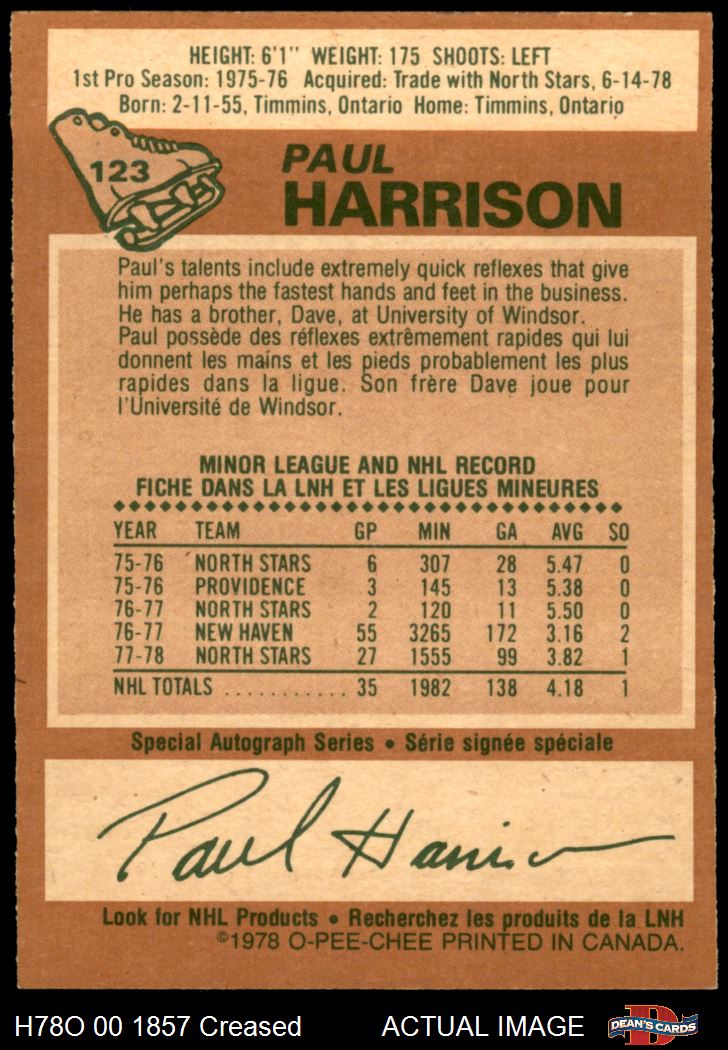 HEIGHT: 6'1" WEIGHT: 175 SHOOTS: LEFT
1st Pro Season: 1975-76 Acquired: Trade with North Stars, 6-14-78
Born: 2-11-55, Timmins, Ontario Home: Timmins, Ontario
123
PAUL
HARRISON
Paul's talents include extremely quick reflexes that give
him perhaps the fastest hands and feet in the business.
He has a brother, Dave, at University of Windsor.
Paul possède des réflexes extrêmement rapides qui lui
donnent les mains et les pieds probablement les plus
rapides dans la ligue. Son frère Dave joue pour
l'Université de Windsor.
MINOR LEAGUE AND NHL RECORD
FICHE DANS LA LNH ET LES LIGUES MINEURES
YEAR TEAM GP MIN GA AVG SO
75-76 NORTH STARS 6 307 28 5.47 0
75-76 PROVIDENCE 3 145 13 5.38 0
76-77 NORTH STARS 2 120 11 5.50 0
76-77 NEW HAVEN 55 3265 172 3.16 2
77-78 NORTH STARS 27 1555 99 3.82 1
NHL TOTALS ........... 35 1982 138 4.18 1
Special Autograph Series • Série signée spéciale
Paul Harrison
Look for NHL Products • Recherchez les produits de la LNH
©1978 O-PEE-CHEE PRINTED IN CANADA.
H78O 00 1857 Creased ACTUAL IMAGE
D
DEAN'S CARDS